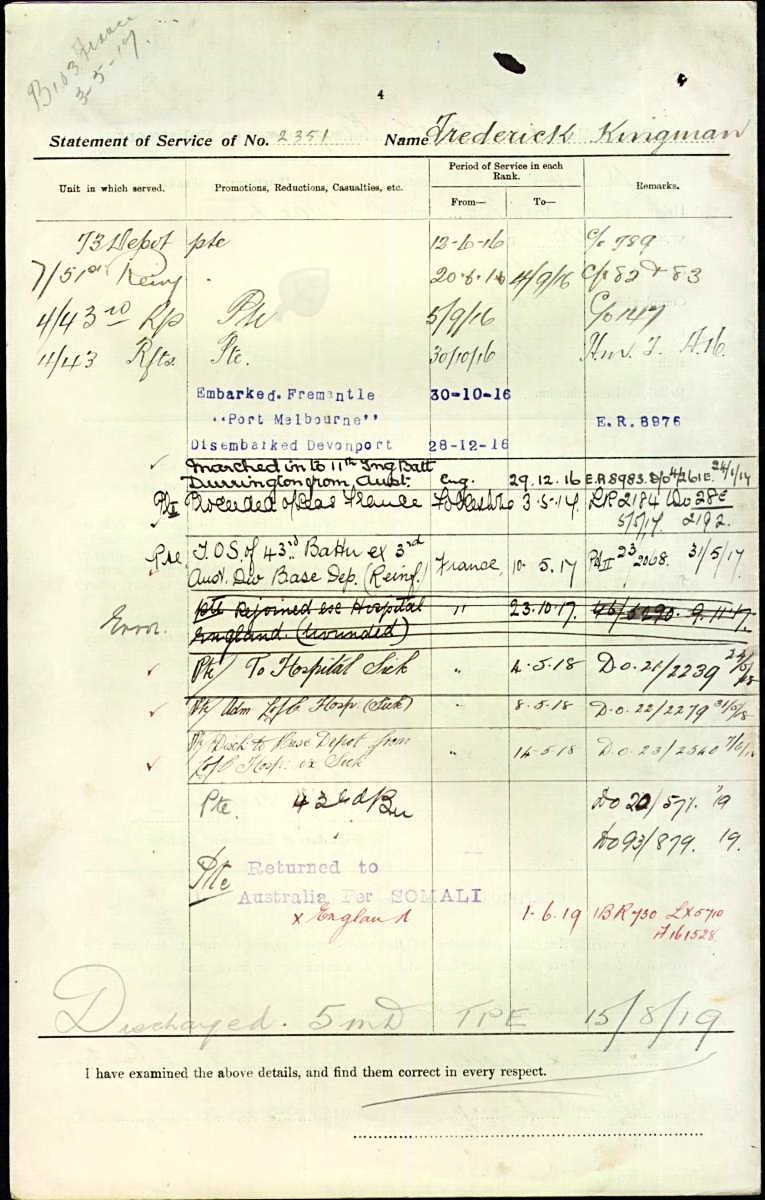 B103 France
3-5-17.
4
Statement of Service of No. 2351 Name Frederick Kingman
Unit in which served. Promotions, Reductions, Casualties, etc. Period of Service in each Rank. Remarks.
From— To—
73 Depot pte 12-6-16
7/51st Reinf 14/9/16 C/o 82 & 83
4/43rd Rfs Pte 5/9/16 C/o 147
4/43 Rfts. Pte. 30/10/16
Embarked. Fremantle 30-10-16
"Port Melbourne" E.R. 8976
Disembarked Devonport 28-12-16
Marched in to 11th Tng Batt
Durrington from Aust. Eng. 29.12.16 E.R 8983.
Pte Proceeded o/seas France Folkestone 3.5.17 2184 Do 28E
5/5/17. 2192.
Pte T.O.S of 43rd Battn ex 3rd
Aust. Div Base Dep. (Reinf.) France, 10. 5. 17 Pt II 23 2068. 31/5/17
Error. pte Rejoined ex Hospital " 23.10.17. 9.11.17.
England. (Wounded)
Pte To Hospital Sick " 4.5.18 D.o. 21/2239
Pte Adm L of C Hosp. (Sick) " 8.5.18 D.o. 22/2279 31/5/18
Pte Disch to Base Depot from
L of C Hosp. ex Sick " 14.5.18 D.o. 23/2340
Pte. 43rd Bn Do 22/577. '19
Do 93/879. 19.
Pte Returned to
Australia Per SOMALI
x England 1.6.19 BR 730 LX5710
A161528
Discharged. 5 MD TPE 15/8/19
I have examined the above details, and find them correct in every respect.